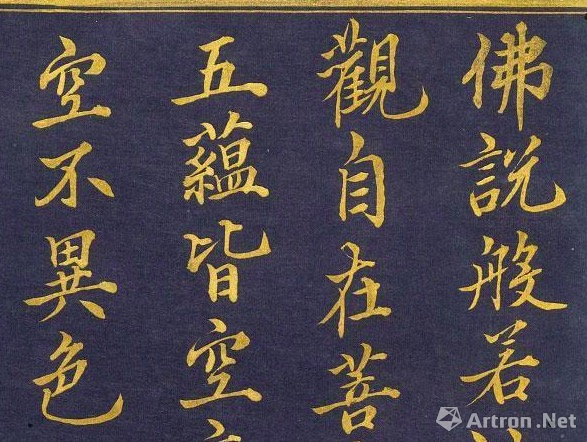 佛說般若
觀自在菩
五蘊皆空
空不異色
Artron.Net